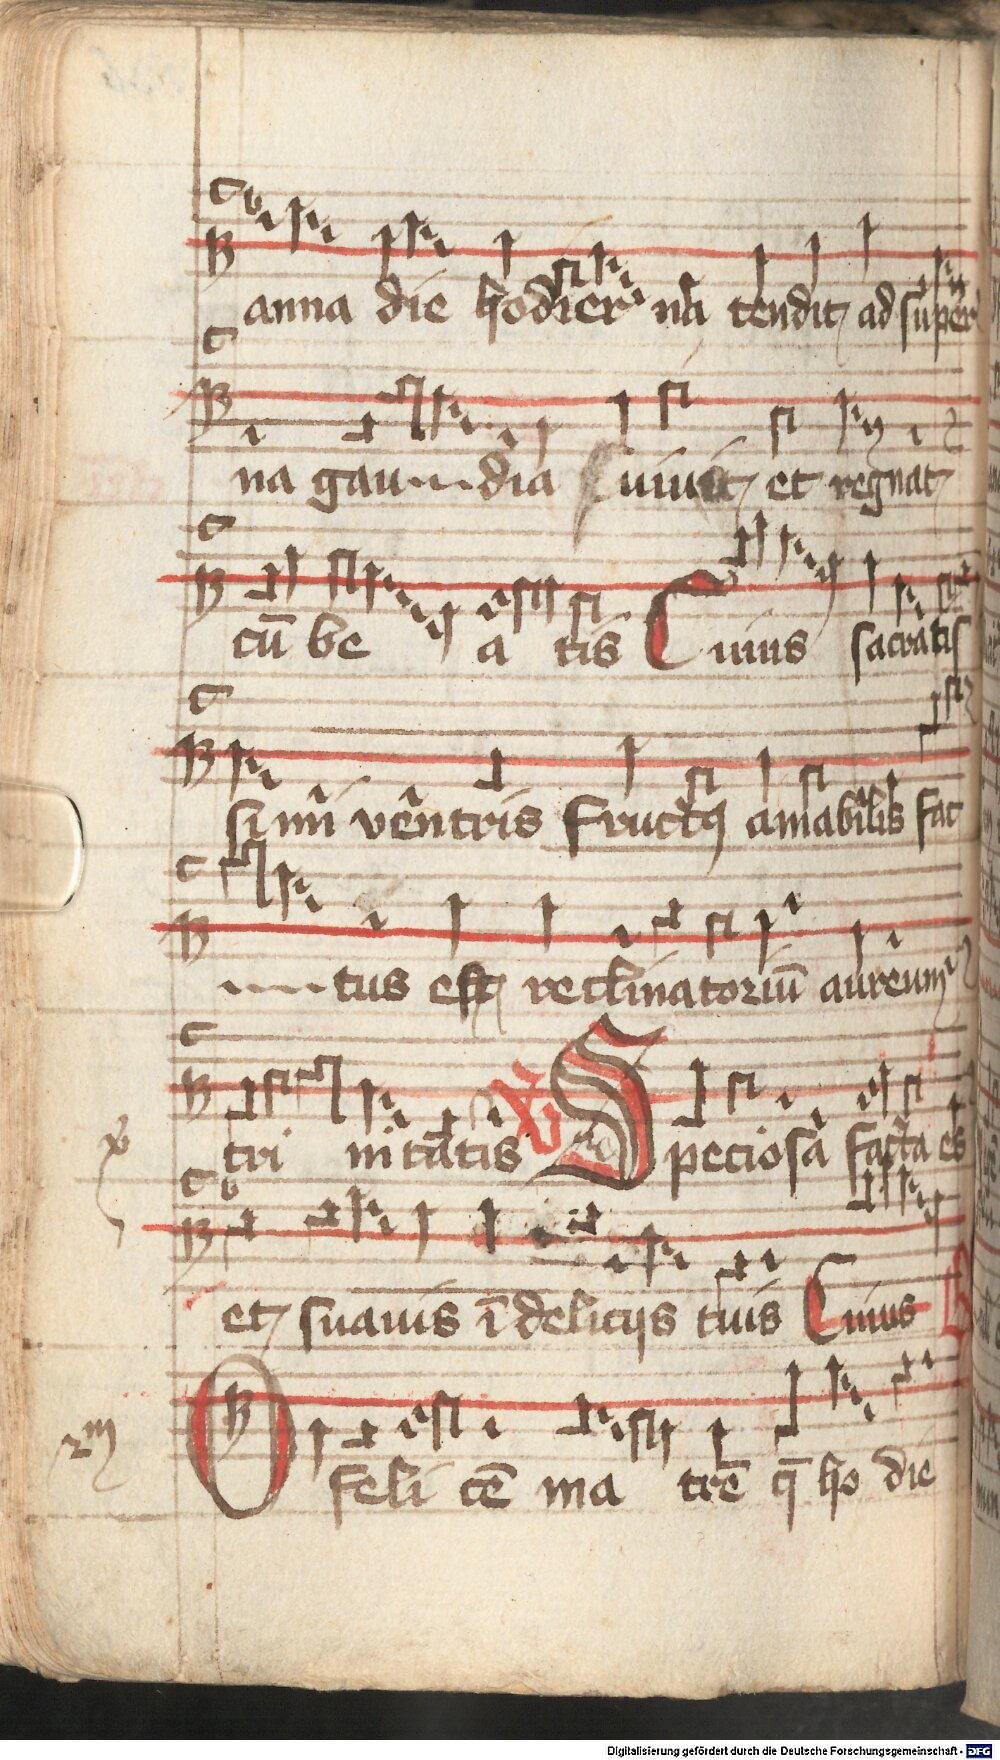 anna die hodierna tendit ad super
na gau....dia Cuiuit et regnat
cū be a tis Cuius sacratis
simi ventris fructus amabilis fac
.....tus est reclinatoriū aureum
tri nitatis Speciosa facta es
et suauis ī delicijs tuis Cuius
O feli cē ma trē q̄ ho die
2m
Digitalisierung gefördert durch die Deutsche Forschungsgemeinschaft - DFG